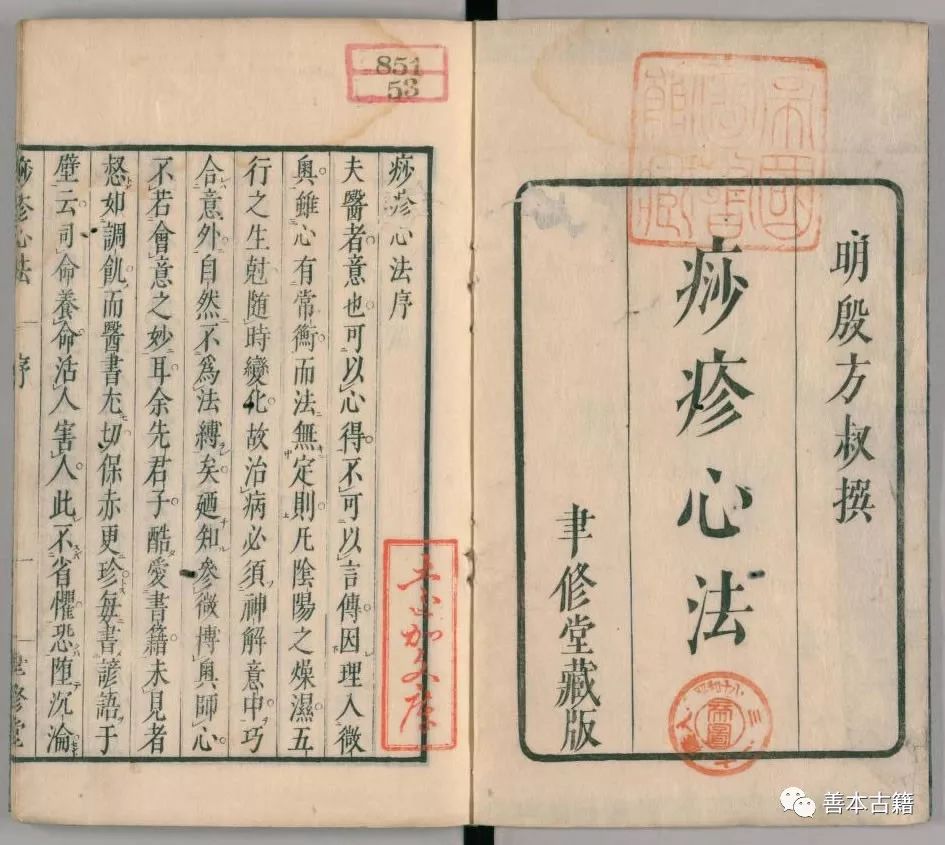 帝國
圖書
館藏
明殷方叔撰
痧疹心法
聿修堂藏版
帝圖
851
53
痧疹心法序
夫醫者意也可以心得不可以言傳因理入微
奧雖心有常衡而法無定則凡陰陽之燥濕五
行之生尅隨時變化故治病必須神解意中巧
合意外自然不爲法縛矣廼知參微博奧師心
不若會意之妙耳余先君子酷愛書籍未見者
惄如調飢而醫書尢切保赤更珍每書諺語于
壁云司命養命活人害人此不省懼恐堕沉淪
痧疹心法 序 一 聿修堂
善本古籍